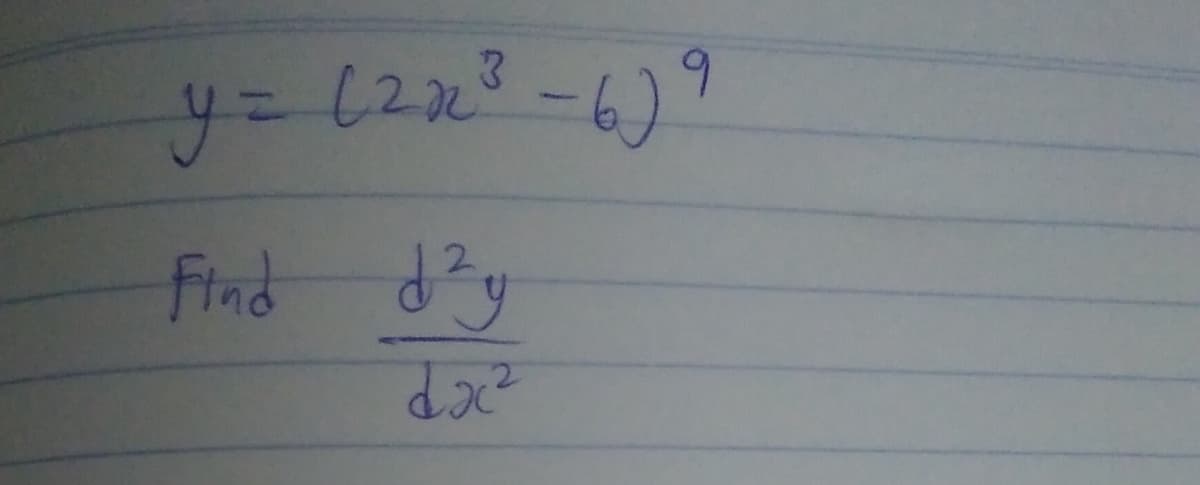 y = (2x³ - 6)⁹
Find d²y
dx²